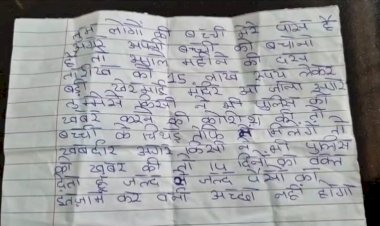 तुम लोगो की बच्ची मेरे पास है
अगर अपनी बच्ची को बचाना
है तो अपाल महीने की दस
तारीख को 15 लाख रूपये लेकर
खेर महेर आ जाना अगर
तुममेसे कीसी ने भी पुलीस को
खबर करने की कोशिश की तो
बच्ची के
खबरदार अगर कीसी ने भी पुलीस
को खबर की तो 14 दीनो का वक्त
देता है जल्द से जल्द पैसो का
इंतजाम कर वर्ना अच्छा नही होगा